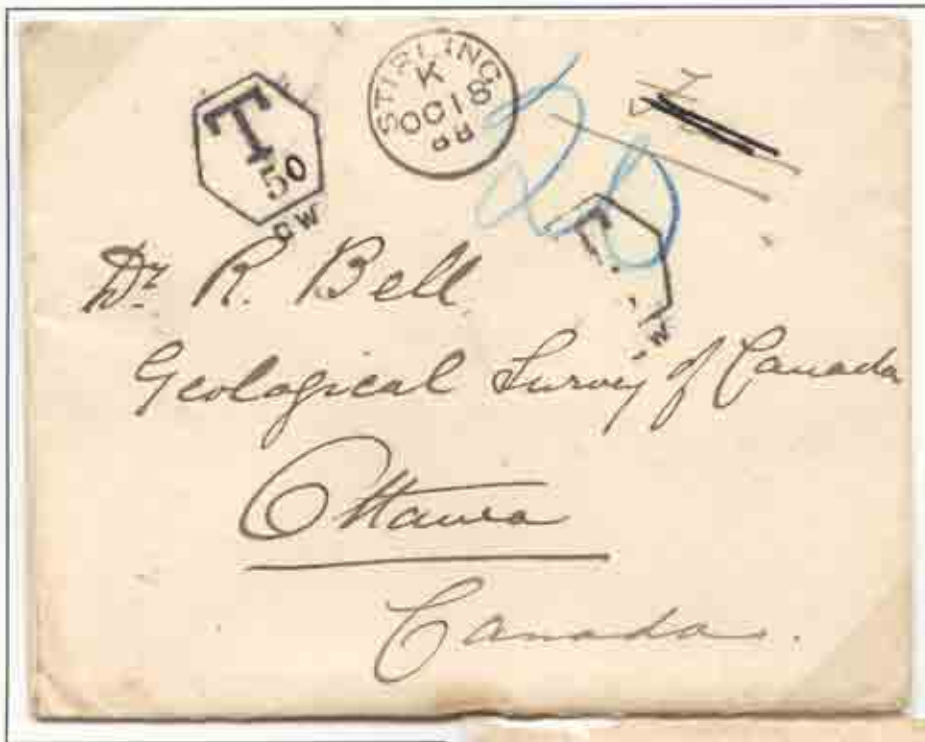 T
50
GW
STIRLING
K
OC 18
88
20
T
Dr. R. Bell
Geological Survey of Canada
Ottawa
Canada.